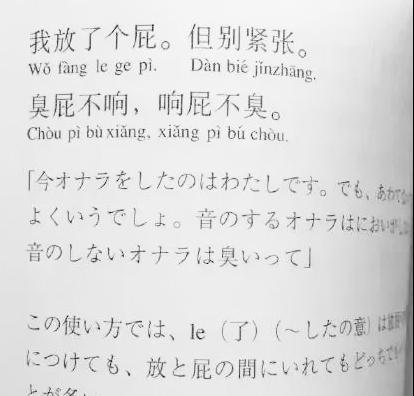 我放了个屁。但别紧张。
Wǒ fàng le ge pì. Dàn bié jǐnzhāng.
臭屁不响，响屁不臭。
Chòu pì bù xiǎng, xiǎng pì bú chòu.
「今オナラをしたのはわたしです。でも、あわて
よくいうでしょ。音のするオナラはにおい
音のしないオナラは臭いって」
この使い方では、le（了）（～したの意）は
につけても、放と屁の間にいれてもどっちで
とが多